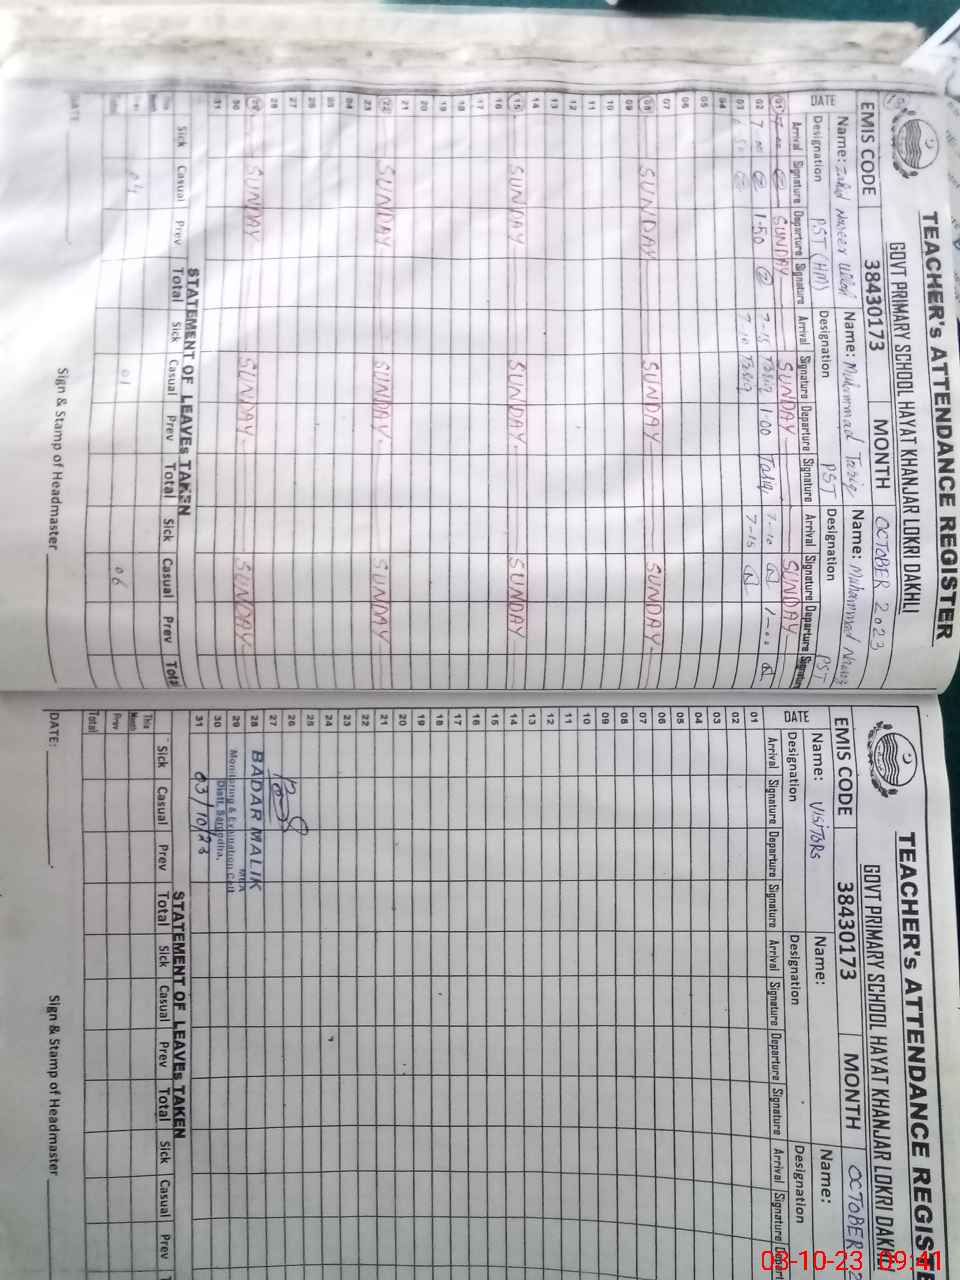 TEACHER's ATTENDANCE REGISTER
GOVT PRIMARY SCHOOL HAYAT KHANJAR LOKRI DAKHLI
EMIS CODE 38430173 MONTH OCTOBER 2023
Name: Name: Muhammad Tariq Name: Muhammad Nawaz
Designation PST (HM) Designation PST Designation PST
DATE Arrival Signature Departure Signature Arrival Signature Departure Signature Arrival Signature Departure Signature
01 SUNDAY SUNDAY SUNDAY
02 1-50 7-15 Tariq 1-00 Tariq 7-10
03 7-10 Tariq 7-15
04
05
06
07
08 SUNDAY SUNDAY SUNDAY
09
10
11
12
13
14
15 SUNDAY SUNDAY SUNDAY
16
17
18
19
20
21
22 SUNDAY SUNDAY SUNDAY
23
24
25
26
27
28
29 SUNDAY SUNDAY SUNDAY
30
31
STATEMENT OF LEAVEs TAKEN
Sick Casual Prev Total Sick Casual Prev Total Sick Casual Prev Total
This Month
Prev
Total 04 01 06
DATE: Sign & Stamp of Headmaster
TEACHER's ATTENDANCE REGISTE
GOVT PRIMARY SCHOOL HAYAT KHANJAR LOKRI DAKHL
EMIS CODE 38430173 MONTH OCTOBER 2
Name: VISITORS Name: Name:
Designation Designation Designation
DATE Arrival Signature Departure Signature Arrival Signature Departure Signature Arrival Signature Depart
01
02
03
04
05
06
07
08
09
10
11
12
13
14
15
16
17
18
19
20
21
22
23
24
25
26
27
28
29
30
31
BADAR MALIK
MEA
Monitoring & Evaluation Cell
Distt. Sargodha.
03/10/23
STATEMENT OF LEAVEs TAKEN
Sick Casual Prev Total Sick Casual Prev Total Sick Casual Prev
This Month
Prev
Total
DATE: Sign & Stamp of Headmaster
03-10-23 09:41